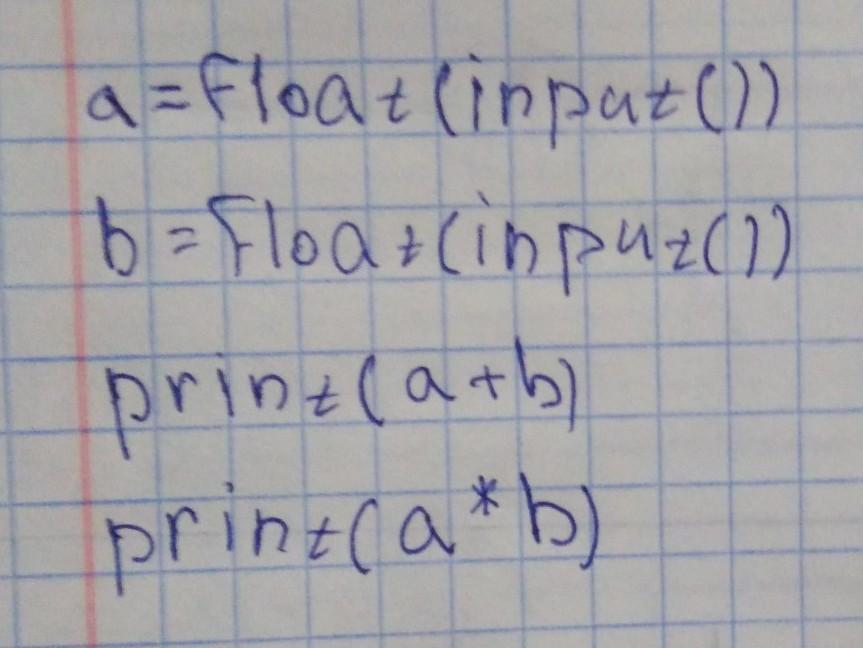 a=float(input())
b=float(input())
print(a+b)
print(a*b)